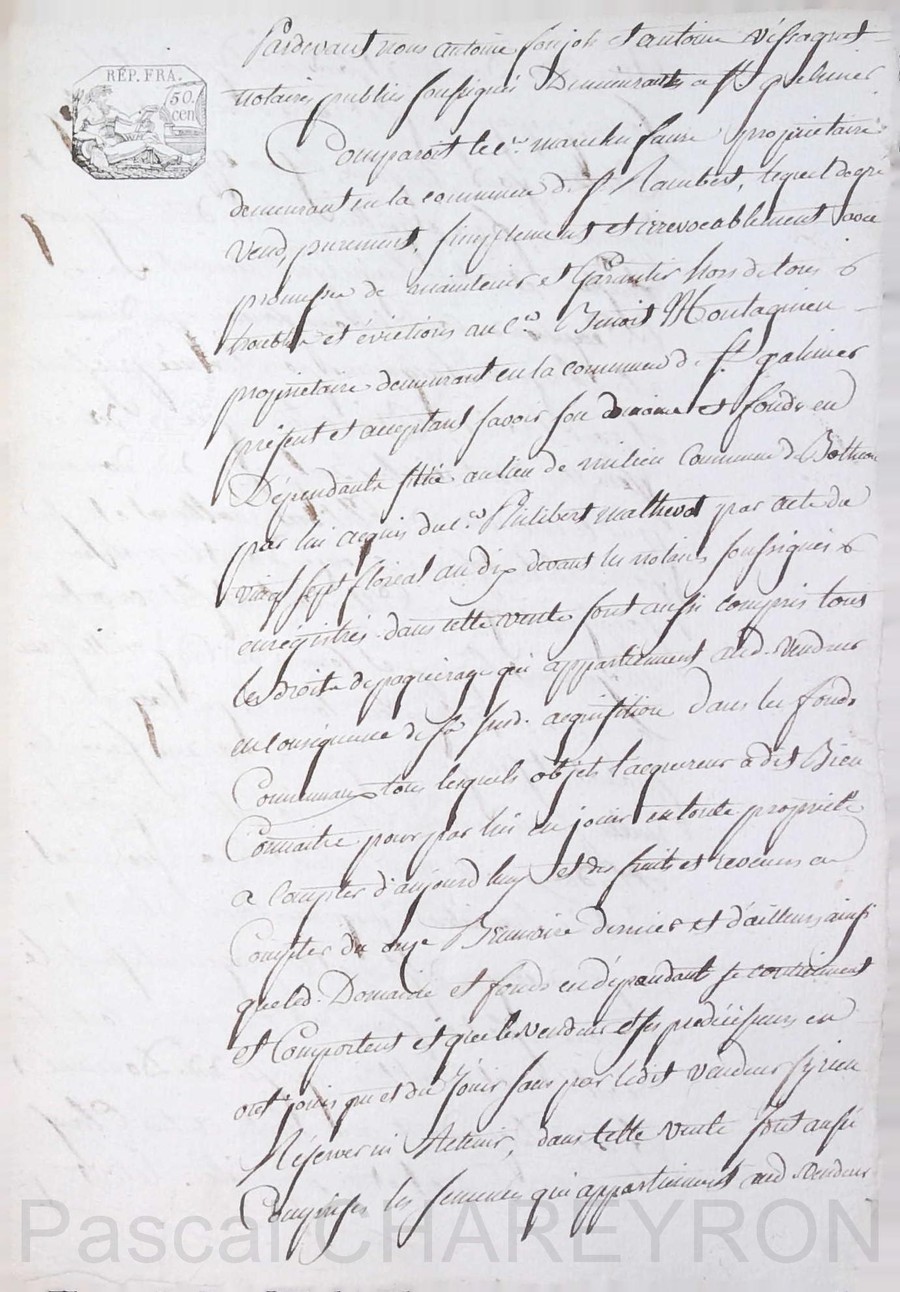 RÉP. FRA.
50.
cen
Pardevant nous antoine et antoine
notaires publics soussignés Demeurants a St galmier
Comparoit le c.en marcelin faure proprietaire
demeurant en la commune de St Rambert, lequel de gré
vend, purement, simplement et irrevocablement avec
promesse de maintenir et Garantir hors de tous
trouble et évictions au c.en Benoit Montagnieu
propriétaire demeurant en la commune de St galmier
présent et acceptant savoir son domaine et fonds en
Dépendants situé au lieu de milieu Commune de
par lui acquis du c.en Philibert mathevot par acte du
vingt sept floreal an dix devant les notaires soussignés
enregistrés. dans cette vente sont aussi compris tous
les droits de paqueirage qui appartiennent aud. vendeur
en conséquence de sa sud. acquisition Dans les fonds
Communaux tous lesquels objets l'acquereur a dit Bien
Connaitre pour par lui en jouir en toute propriété
a compter d'aujourd huy et des fruits et revenus a
Compter du onze Brumaire dernier et d'ailleurs ainsi
que led. Domaine et fonds en dépendant se contiennent
et Comportent et que le vendeur et ses prédécesseurs en
ont jouis pu et du jouir sans par ledit vendeur s'y rien
Réserver ni Retenir, dans cette vente sont aussi
Comprises les semences qui appartiennent aud. vendeur
Pascal CHAREYRON